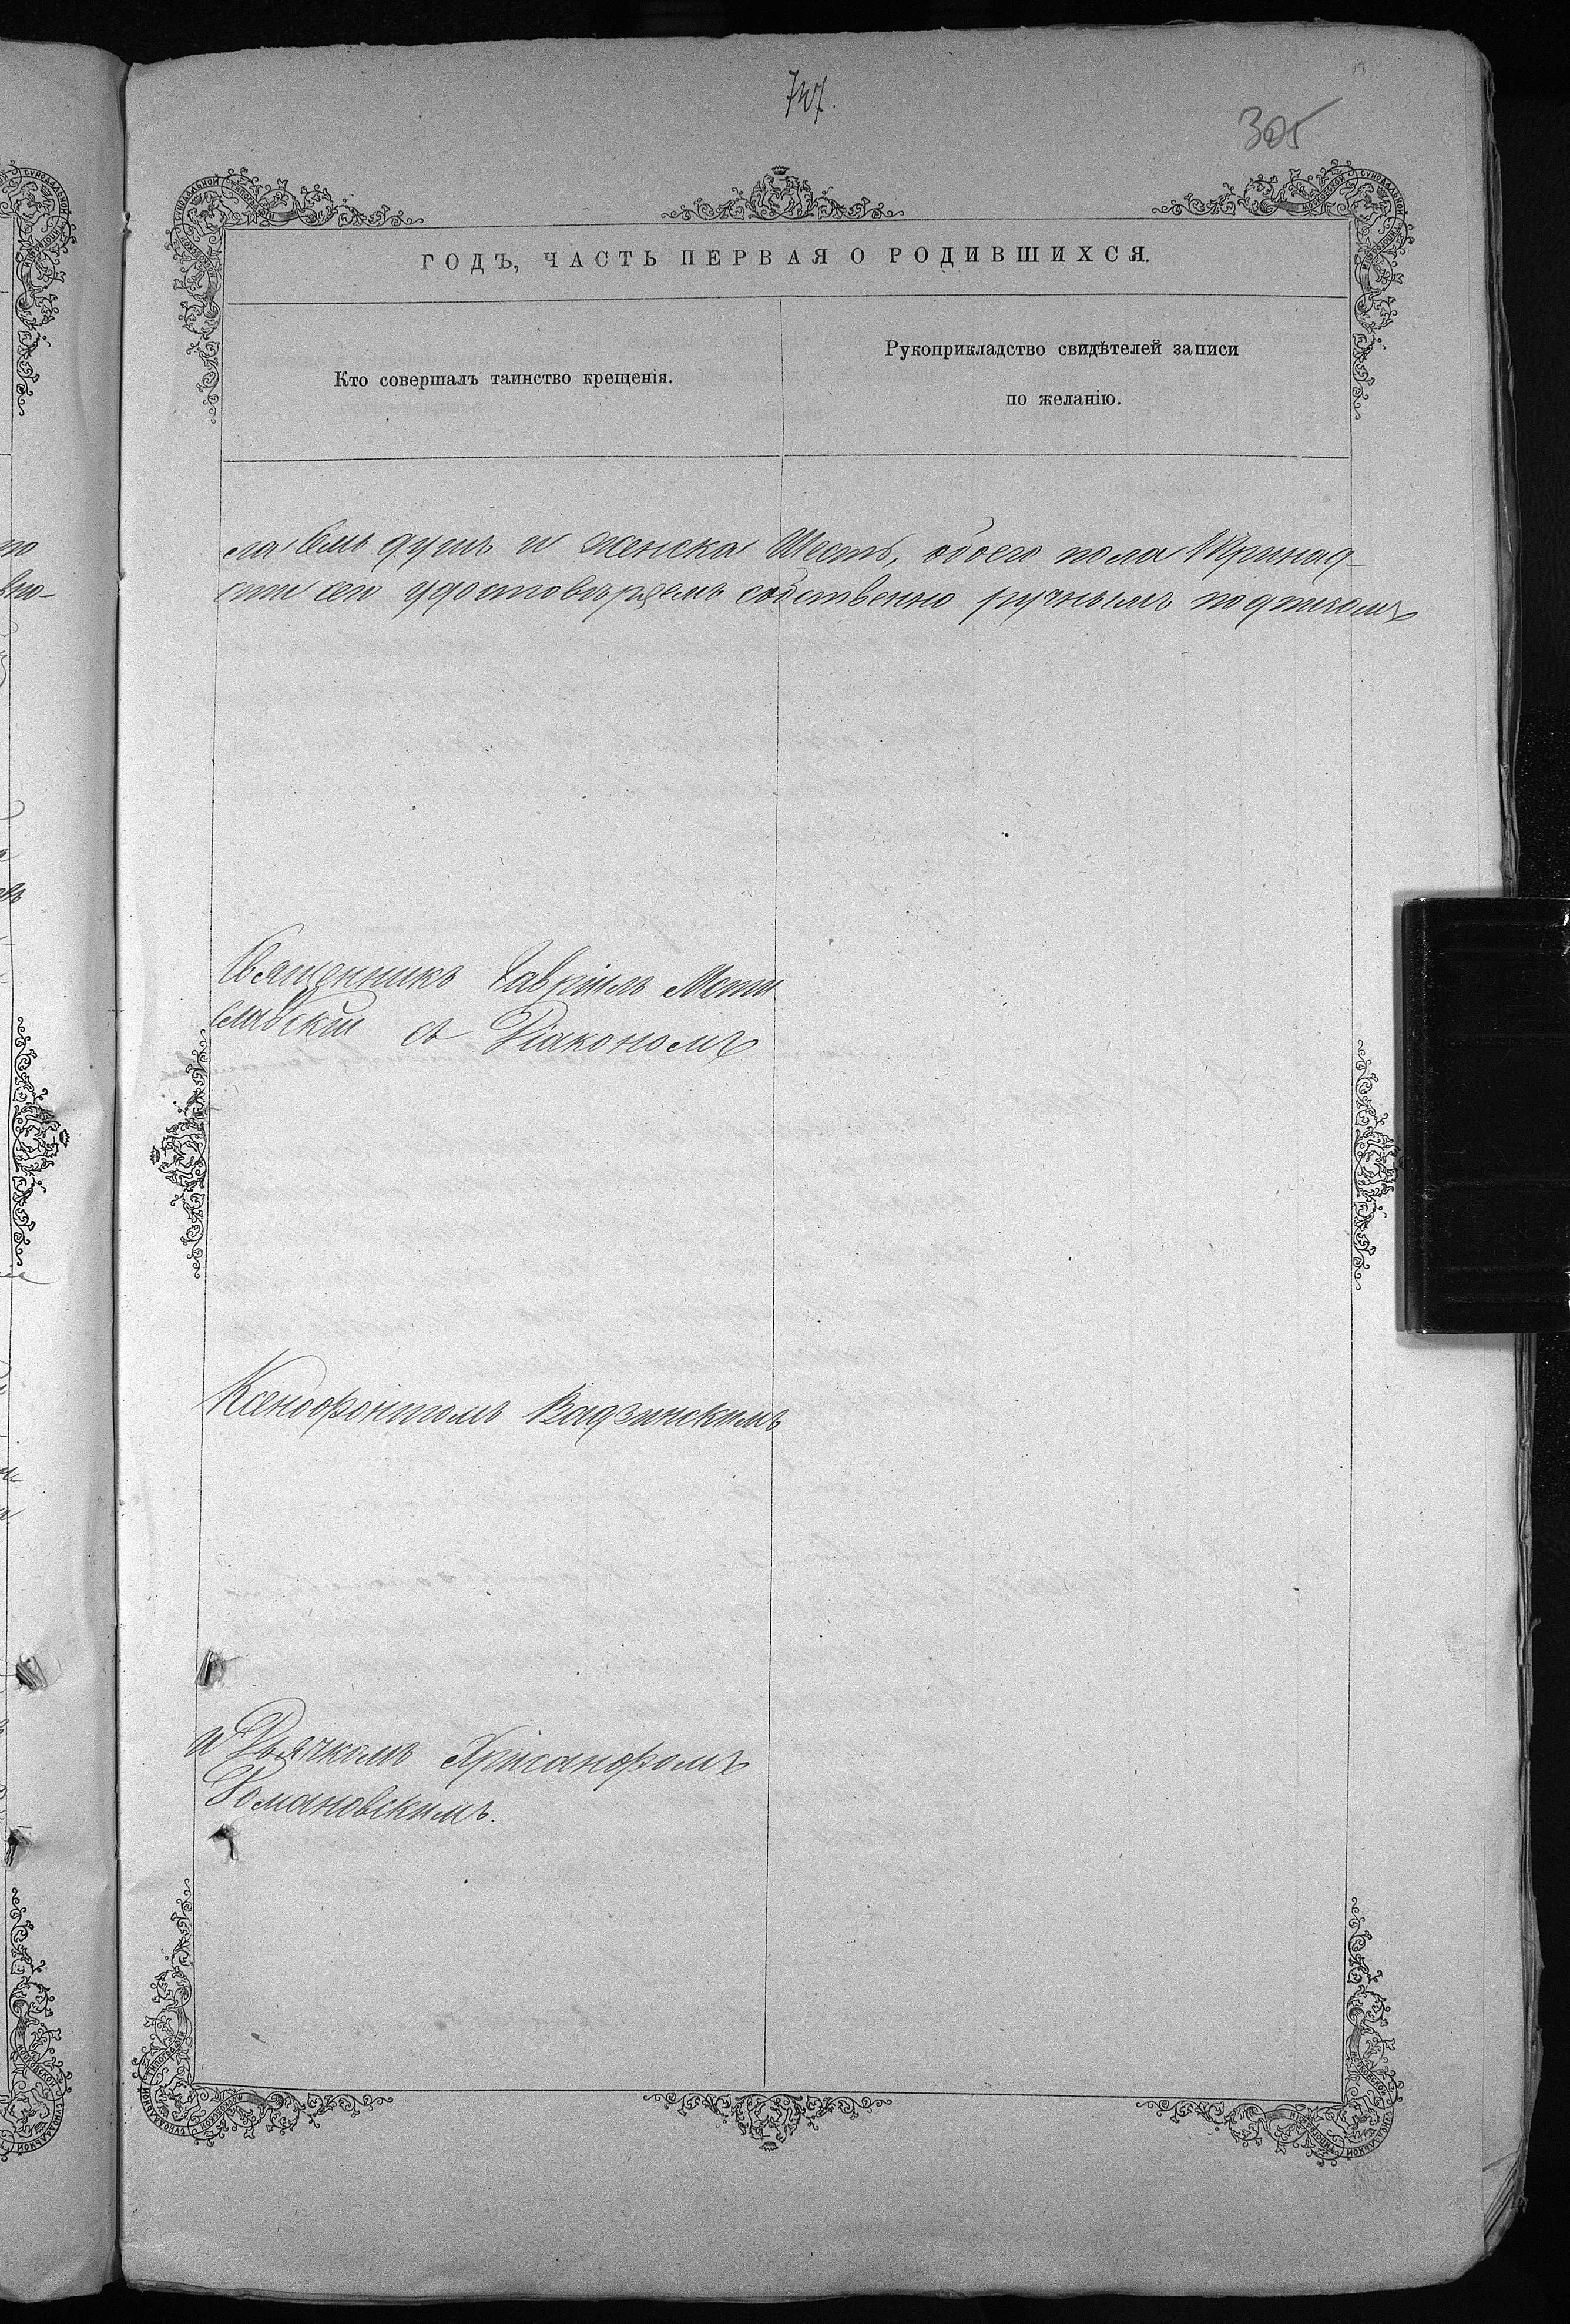 747.
305
ГОДЪ, ЧАСТЬ ПЕРВАЯ О РОДИВШИХСЯ.
Кто совершалъ таинство крещенія.
Рукоприкладство свидѣтелей записи
по желанію.
ла семь душъ и женска шесть, обоего пола тринад-
сти сего удостовѣряемъ собственно ручнымъ подписомъ
Священникъ Гавріилъ Мсти
славскій съ Діакономъ
Ксенофонтомъ Вадзинскимъ
и Дьячкомъ Хрисанфомъ
Романовскимъ.